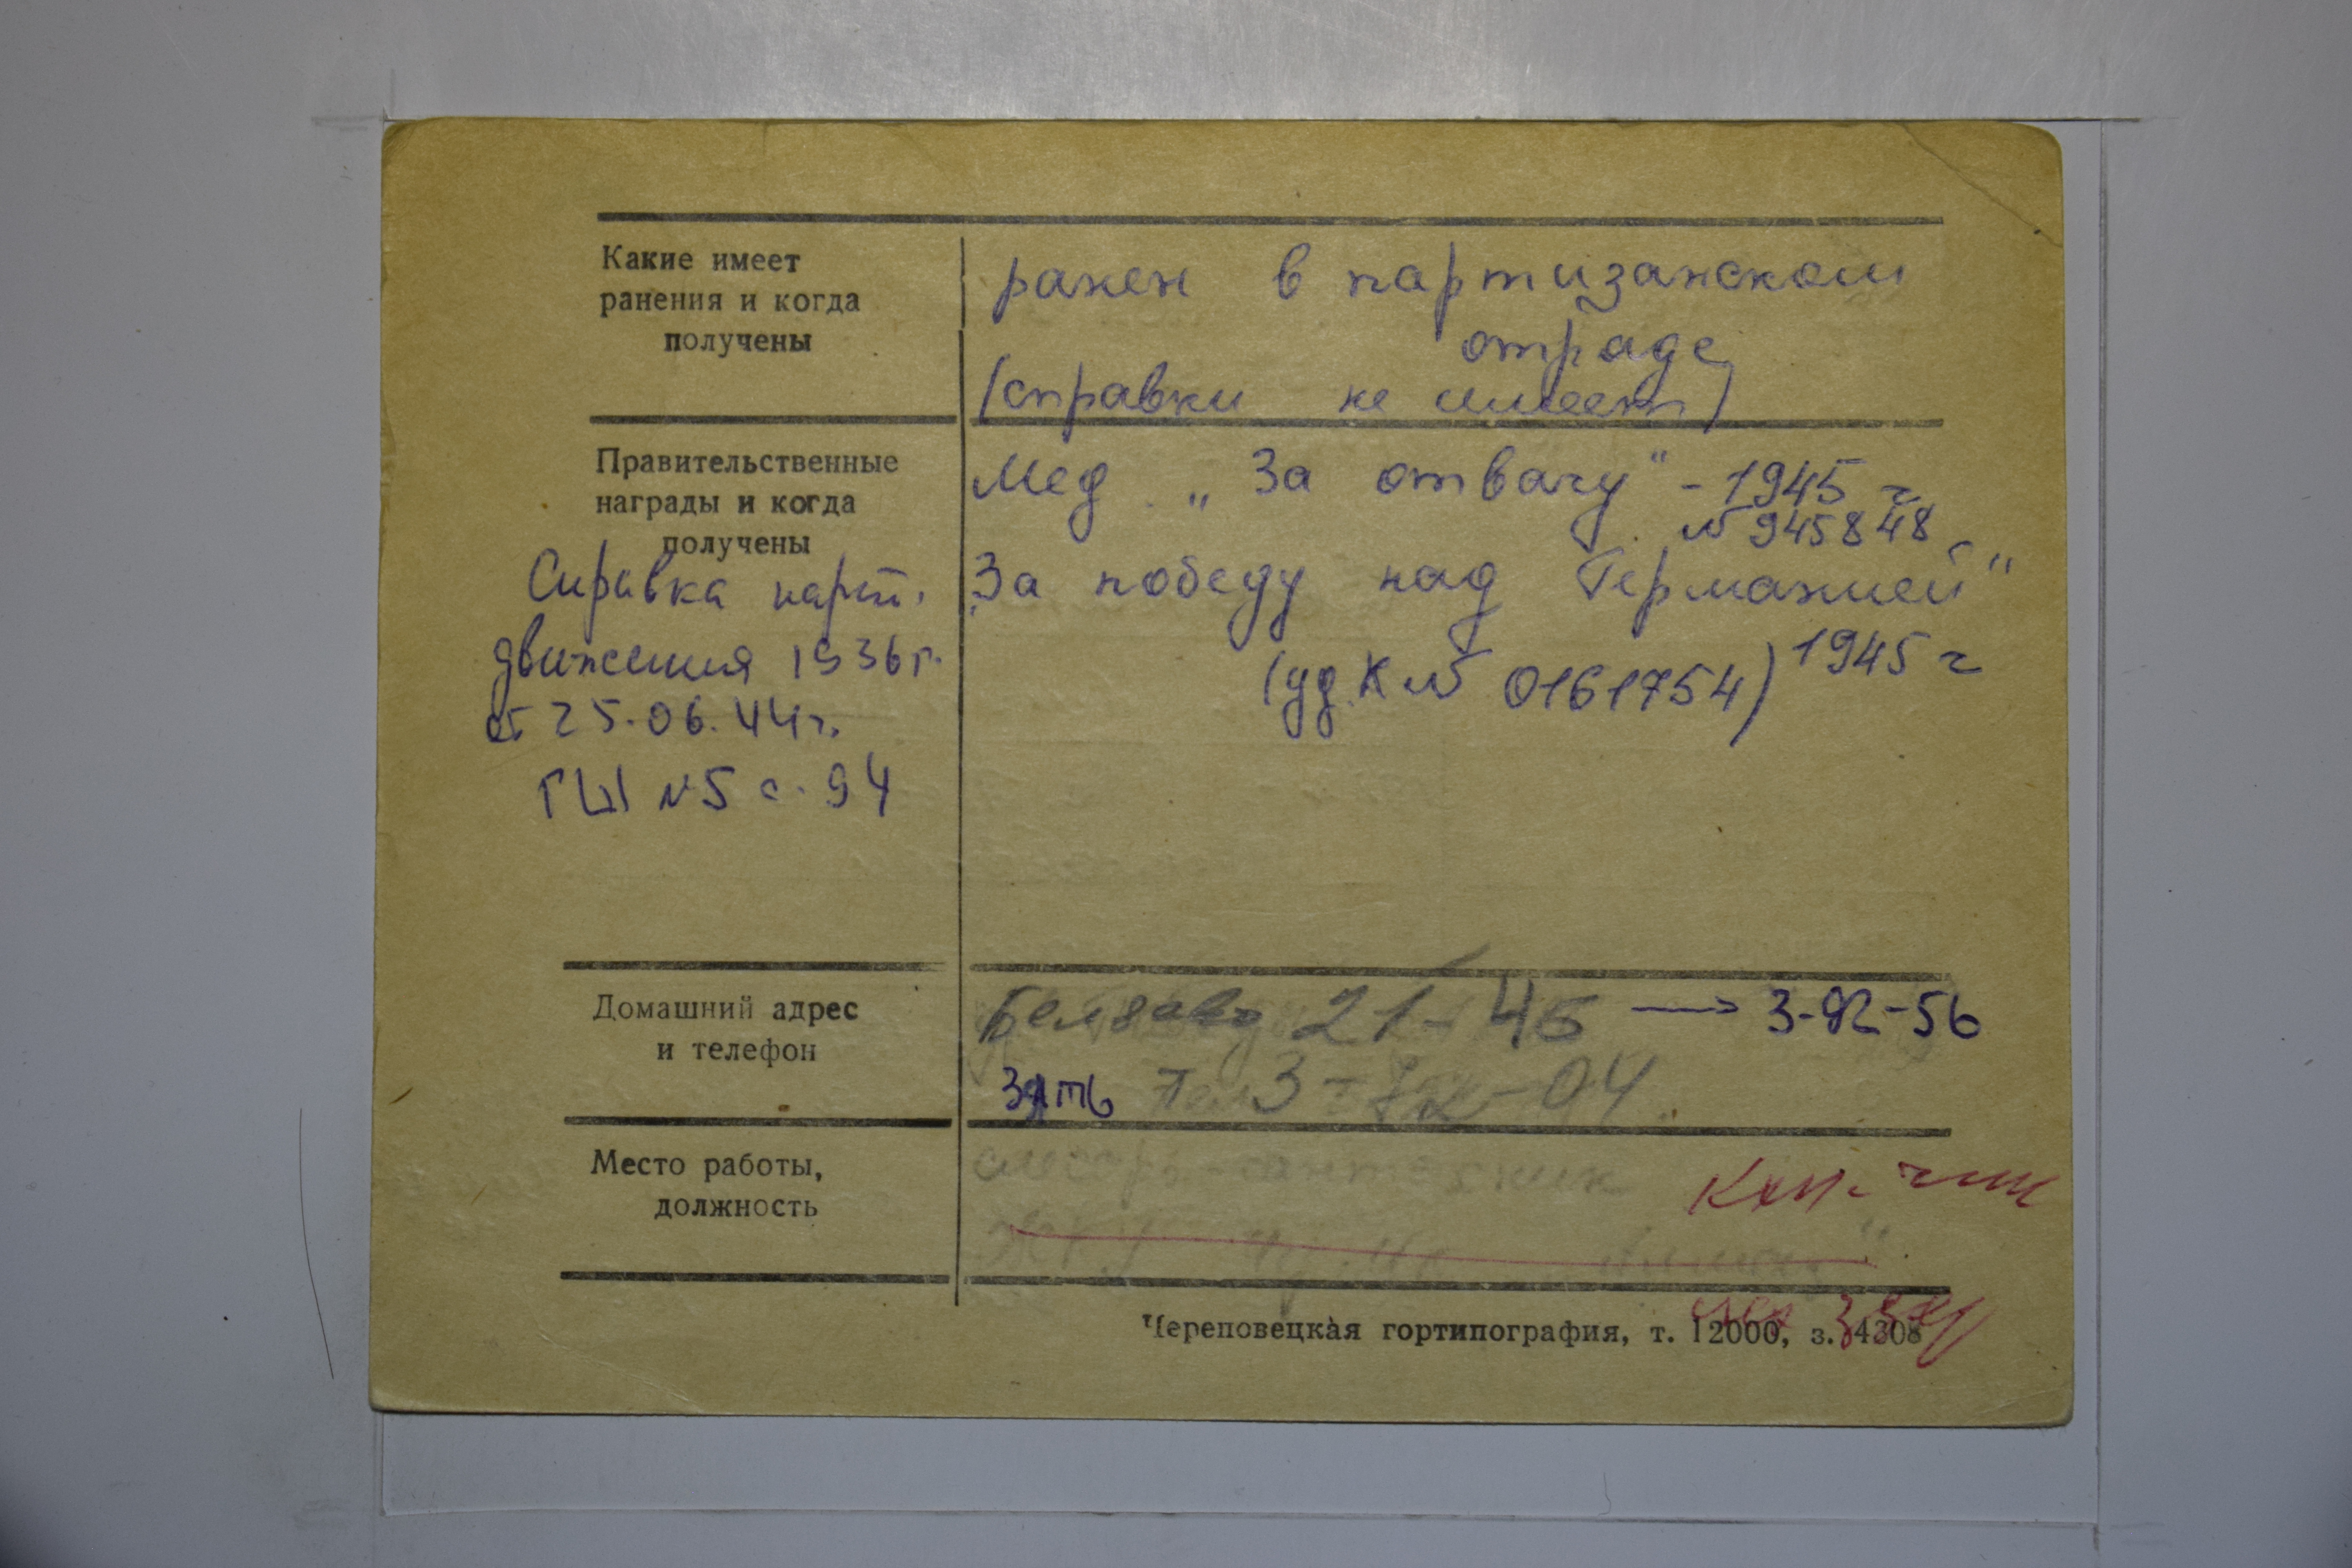 Какие имеет
ранения и когда
получены
ранен в партизанском
отряде
(справки не имеет)
Правительственные
награды и когда
получены
Мед. „За отвагу" - 1945 г.
№ 945848
„За победу над Германией"
(уд. К № 0161754) 1945 г
Справка парт.
движения 1936 г.
от 25.06.44 г.
№5 с. 94
Домашний адрес
и телефон
21-46 → 3-92-56
зять Тел 3-72-04
Место работы,
должность
слесарь-сантехник
ЖКУ
Череповецкая гортипография, т. 12000, з. 4308